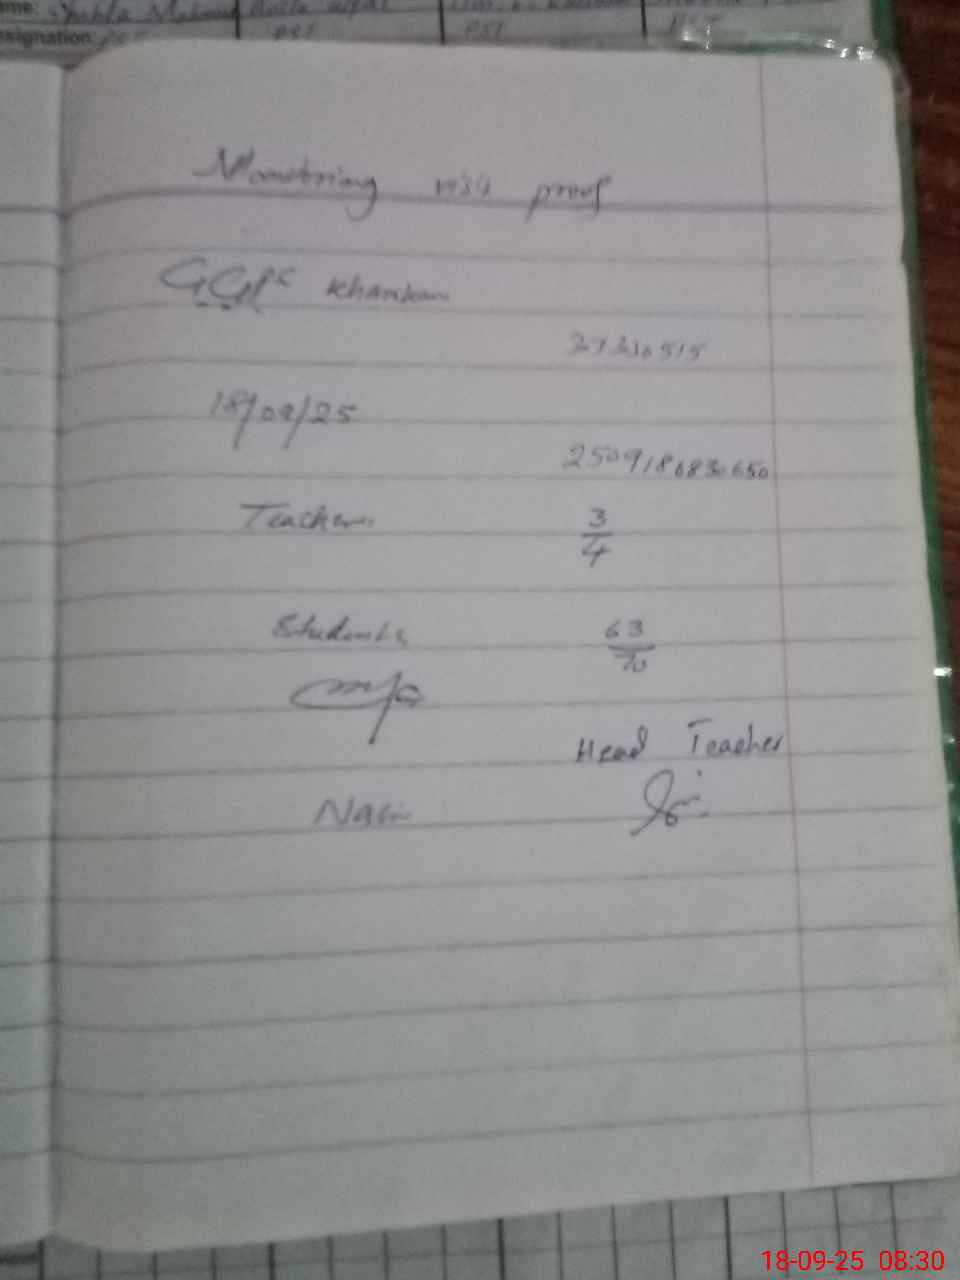 ame: Shahla
esignation: PST PST PST
Monitoring visit proof
GGPS
37330515
18/09/25
2509180830650
Teachers 3/4
Students 63/70
Head Teacher
18-09-25 08:30